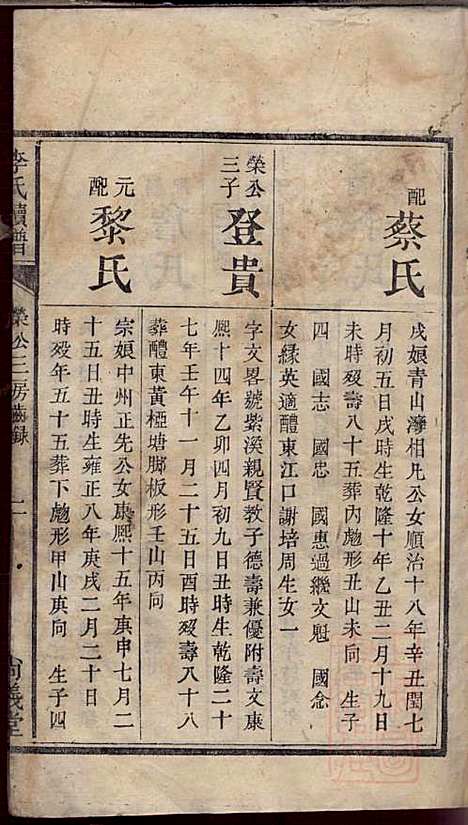 配
蔡氏
戌娘青山灣相凡公女順治十八年辛丑閏七
月初五日戌時生乾隆十年乙丑二月十九日
未時歿壽八十五葬內彪形丑山未向　生子
四　國志　國忠　國惠過繼文魁　國念
女緣英適醴東江口謝培周生女一
榮公
三子
登貴
字文畧號紫溪親賢教子德壽兼優附壽文康
熙十四年乙卯四月初九日丑時生乾隆二十
七年壬午十一月二十五日酉時歿壽八十八
葬醴東黃極塘脚板形壬山丙向
元
配
黎氏
宗娘中州正先公女康熙十五年庚申七月二
十五日丑時生雍正八年庚戌二月二十日
時歿年五十五葬下彪形甲山庚向　生子四
李氏續譜
榮公三房齒錄
二
尚義堂